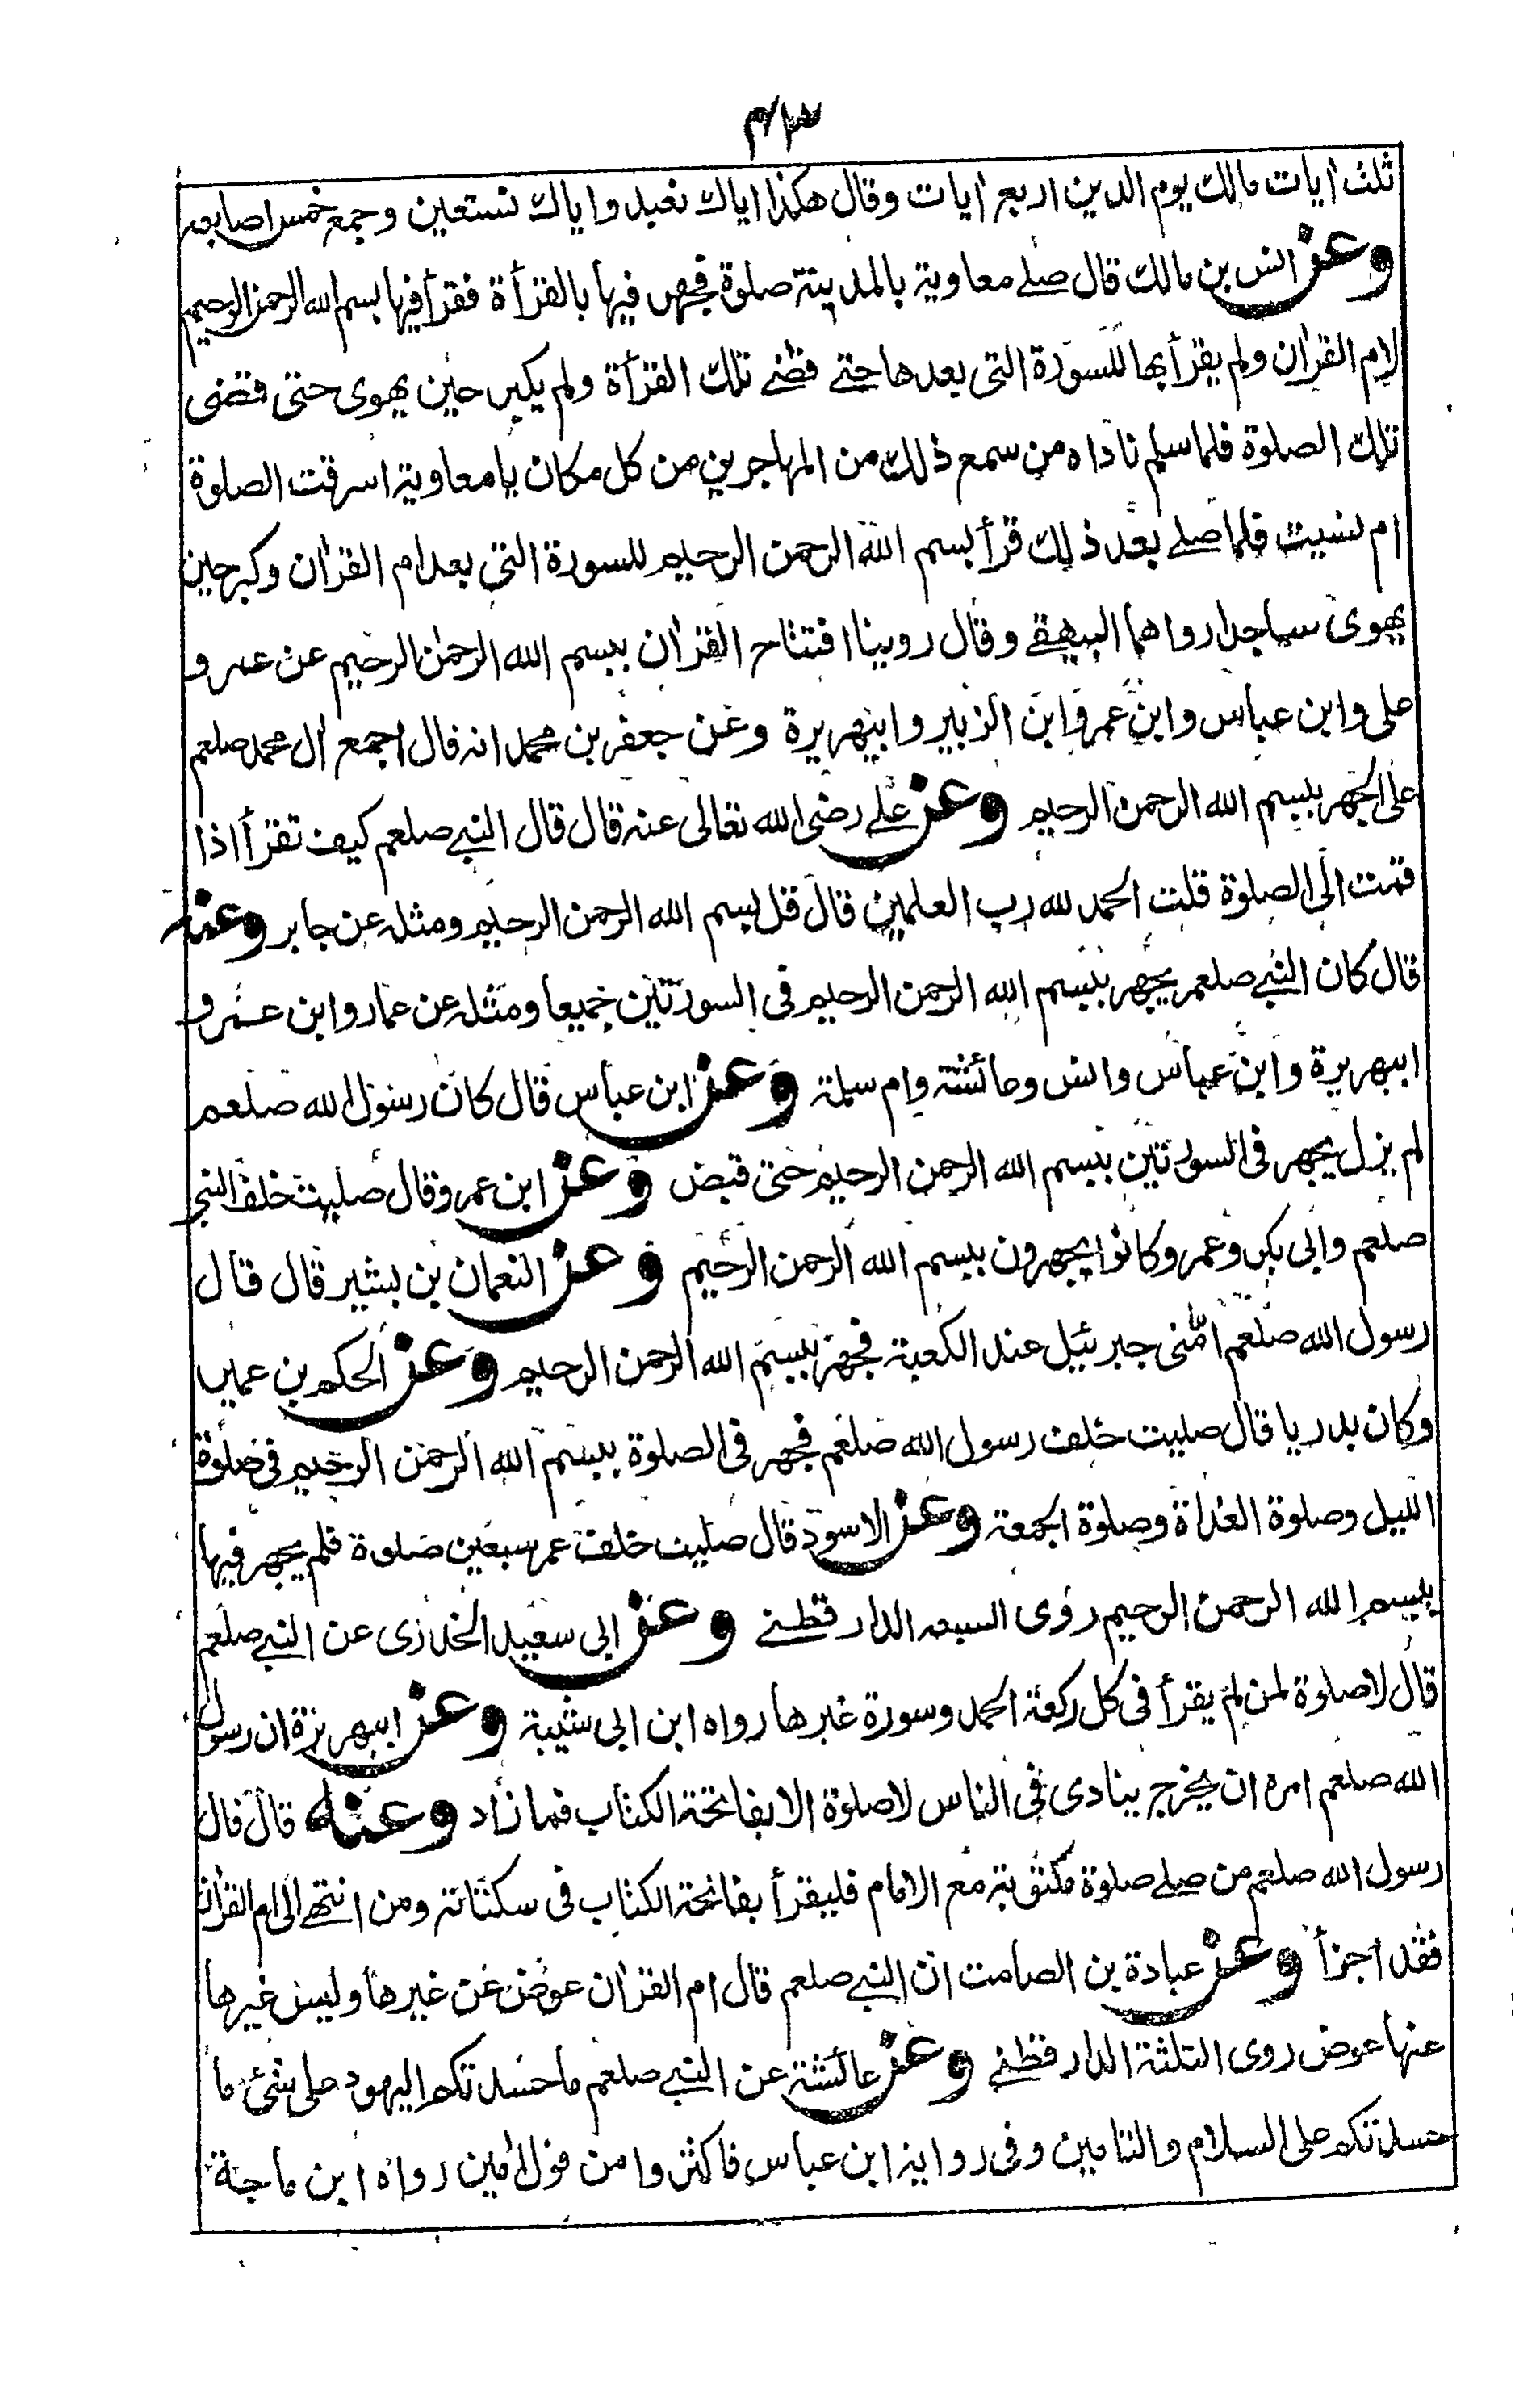 ۴۳
ثلث ايات مالك يوم الدين اربع ايات وقال هكذا اياك نعبد واياك نستعين وجمع خمس اصابعه
وعن انس بن مالك قال صلے معاوية بالمدينة صلوة فجهر فيها بالقرأة فقرأ فيها بسم الله الرحمن الرحيم
لام القرٰان ولم يقرأ بها للسورة التى بعدها حتے قضے تلك القرأة ولم يكبر حين يهوى حتى قضى
تلك الصلوة فلما سلم ناداه من سمع ذلك من المهاجرين من كل مكان يا معاوية اسرقت الصلوة
ام نسيت فلما صلے بعد ذلك قرأ بسم الله الرحمن الرحيم للسورة التى بعد ام القرٰان وكبر حين
يهوى ساجدا رواهما البيهقے وقال روينا افتتاح القرٰان ببسم الله الرحمٰن الرحيم عن عمر و
على وابن عباس وابن عمر وابن الزبير وابيهريرة وعن جعفر بن محمد انه قال اجمع اٰل محمد صلعم
على الجهر ببسم الله الرحمن الرحيم وعن علے رضى الله تعالى عنه قال قال النبے صلعم كيف تقرأ اذا
قمت الى الصلوة قلت الحمد لله رب العلمين قال قل بسم الله الرحمن الرحيم ومثله عن جابر وعنه
قال كان النبے صلعم يجهر ببسم الله الرحمن الرحيم فى السورتين جميعا ومثله عن عمار وابن عمر و
ابيهريرة وابن عباس وانس وعائشة وام سلمة وعن ابن عباس قال كان رسول الله صلعم
لم يزل يجهر فى السورتين ببسم الله الرحمن الرحيم حتى قبض وعن ابن عمر وقال صليت خلف النبے
صلعم وابى بكر وعمر وكانوا يجهرون ببسم الله الرحمن الرحيم وعن النعمان بن بشير قال قال
رسول الله صلعم امّنى جبرئيل عند الكعبة فجهر ببسم الله الرحمن الرحيم وعن الحكم بن عمير
وكان بدريا قال صليت خلف رسول الله صلعم فجهر فى الصلوة ببسم الله الرحمن الرحيم فى صلوة
الليل وصلوة الغداة وصلوة الجمعة وعن الاسود قال صليت خلف عمر سبعين صلوة فلم يجهر فيها
ببسم الله الرحمن الرحيم روى السبعه الدارقطنے وعن ابى سعيد الخدرى عن النبے صلعم
قال لا صلوة لمن لم يقرأ فى كل ركعة الحمد وسورة غيرها رواه ابن ابى شيبة وعن ابيهريرة ان رسول
الله صلعم امره ان يخرج ينادى فى الناس لا صلوة الا بفاتحة الكتاب فما زاد وعنه قال قال
رسول الله صلعم من صلے صلوة مكتوبة مع الامام فليقرأ بفاتحة الكتاب فى سكتاته ومن انتهے الى ام القرٰان
فقد اجزأ وعن عبادة بن الصامت ان النبے صلعم قال ام القرٰان عوض عن غيرها وليس غيرها
عنها عوض روى الثلثة الدارقطنے وعن عائشة عن النبے صلعم ما حسدتكم اليهود على شئ ما
حسدتكم على السلام والتامين وفى رواية ابن عباس فاكثروا من قول اٰمين رواه ابن ماجة